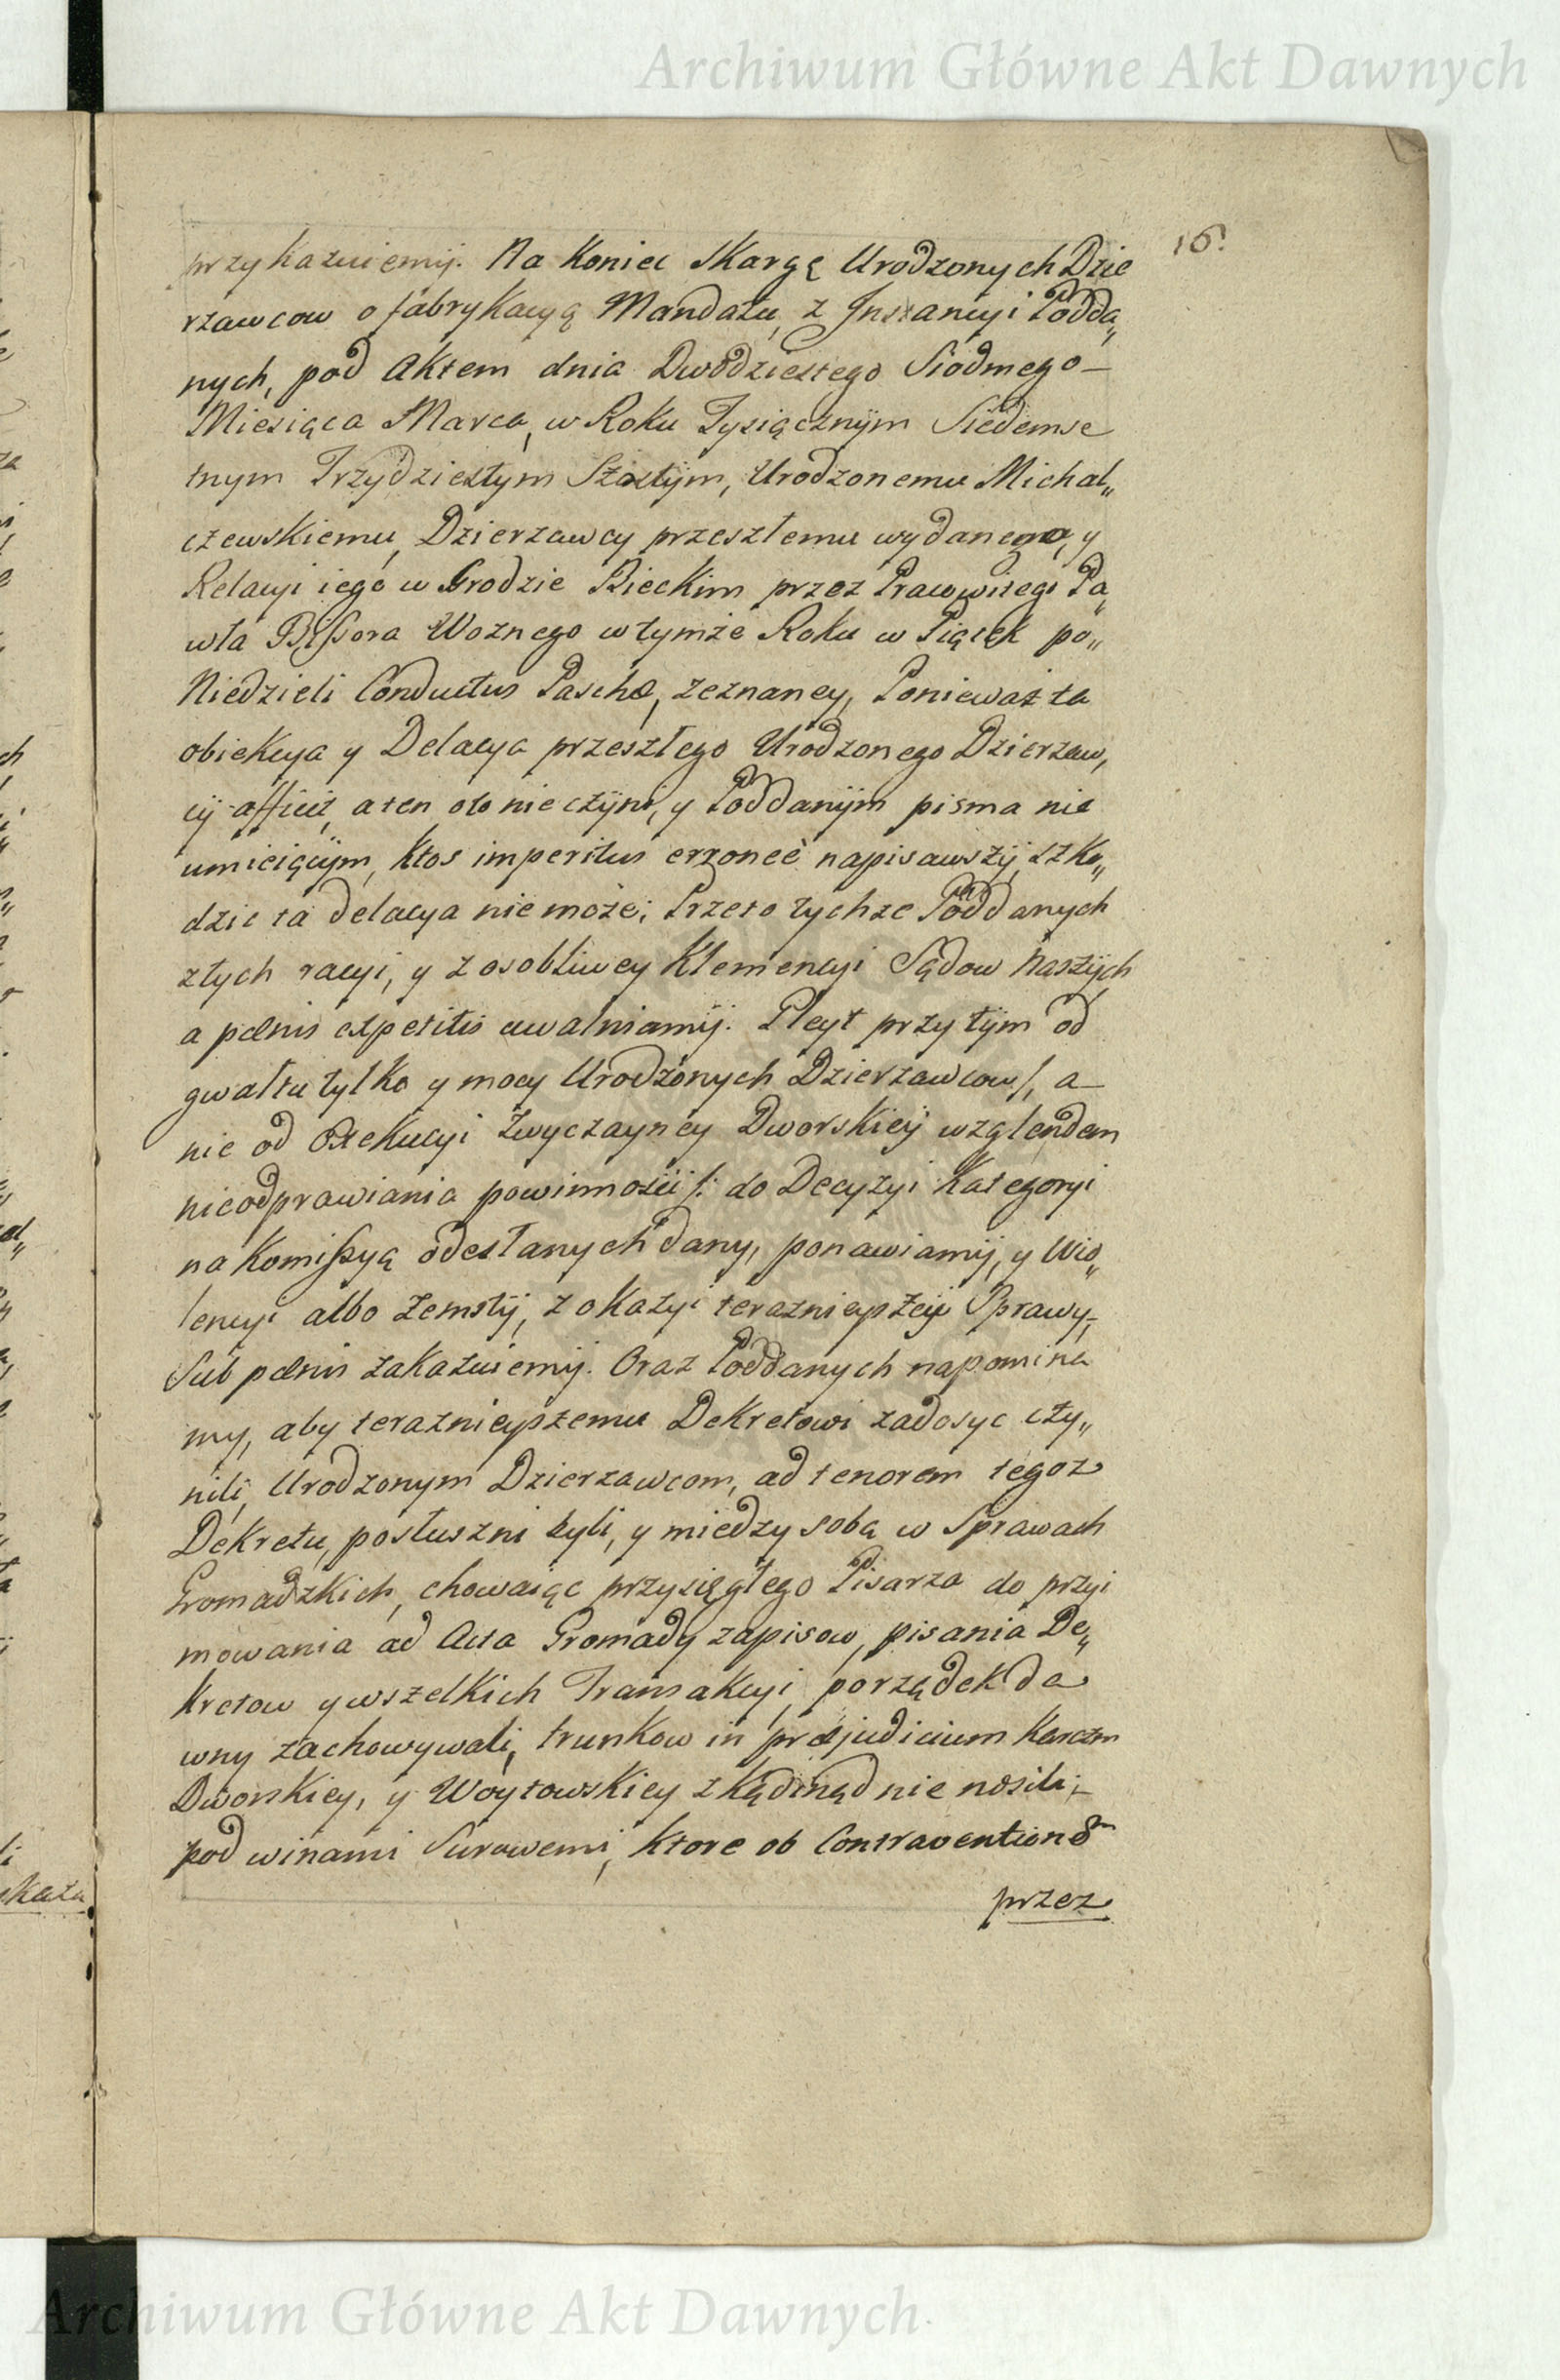 Archiwum Główne Akt Dawnych
16.
przykazuiemÿ. Na Koniec Skargę Urodzonych Dzie
rzawcow o fabrykacyą Mandatu, z Instancyi Podda„
nych, pod Aktem dnia Dwudziestego Siodmego –
Miesiąca Marca, w Roku Tysiącznÿm Siedemse
tnym Trzydziestym Szostÿm, Urodzonemu Michal„
czewskiemu, Dzierzawcy przeszłemu wydanego, y
Relacyi iego w Grodzie Bieckim przez Prawowitego Pa„
wła Woznego w tymże Roku w Piątek po„
Niedzieli Conductus Paschæ, zeznaney, Ponieważ ta
obiekcya y Delacya przeszłego Urodzonego Dzierzaw„
cÿ afficit, a ten oto nie czÿni, y Poddanÿm pisma nie
umieiącÿm, ktos imperitus erroneè napisawszÿ, szko„
dzic ta delacya nie może; Przeto tychze Poddanych
z tych racyi, y z osobliwey Klemencyi Sądow Naszÿch
a pœnis expetitis uwalniamÿ. Gleyt przytÿm od
gwałtu tylko y mocy Urodzonych Dzierzawcow /, a –
nie od Exekucyi zwyczayney Dworskieÿ wzglendem
nieodprawiania powinnosci /: do Decyzyi Kategoryi
na Komissyą odesłanych dany, ponawiamÿ, y Wio„
lencyi albo zemstÿ, z okazyi teraznieyszeÿ Sprawy,
sub pœnis zakazuiemÿ. Oraz Poddanych napomina
my, aby teraznieyszemu Dekretowi zadosyc czy„
nili, Urodzonym Dzierzawcom, ad tenorem tegoz
Dekretu, posłuszni byli, y miedzy sobą w Sprawach
Gromadzkich, chowaiąc przysięgłego Pisarza do przyi
mowania ad Acta Gromady zapisow, pisania De„
kretow y wszelkich Transakcyi, porządek da
wny zachowywali, trunkow in præjudicium Karczm
Dworskiey, y Woytowskiey zkądinąd nie nosili, –
pod winami Surowemi, ktore ob Contraventionem
przez
Archiwum Główne Akt Dawnych